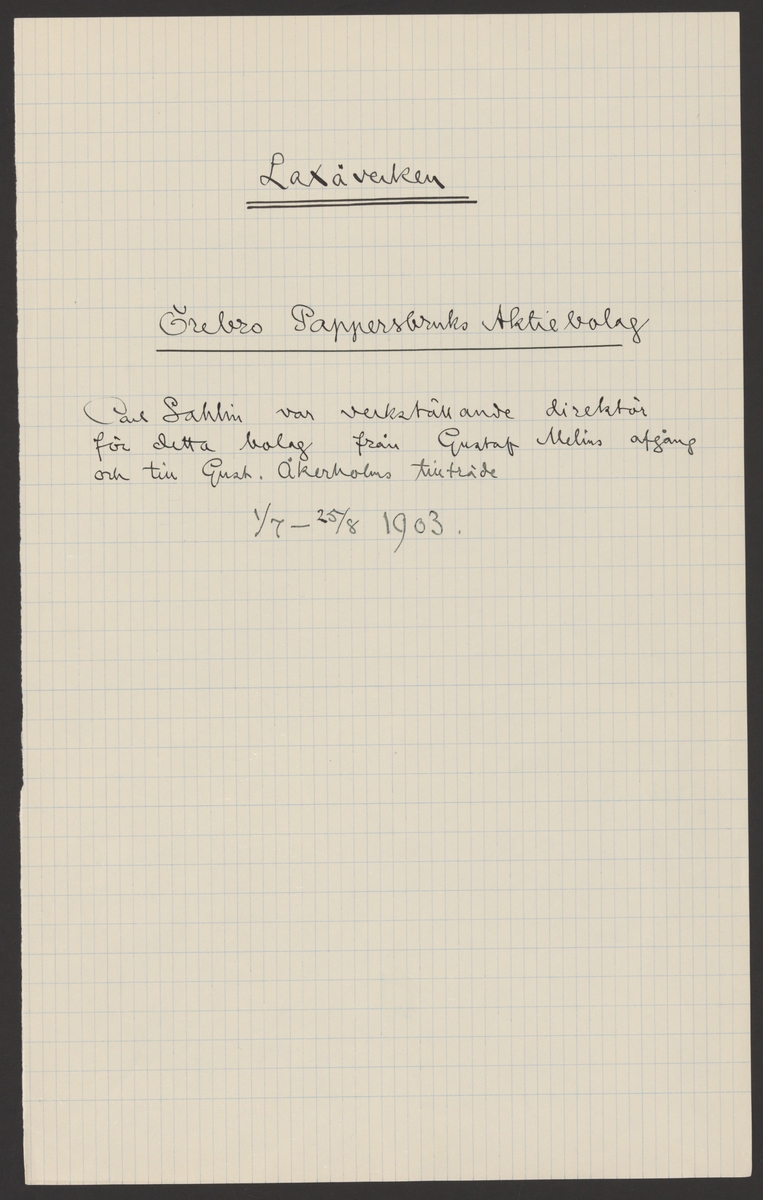 Laxåverken
Örebro Pappersbruks Aktiebolag
Carl Sahlin var verkställande direktör
för detta bolag från Gustaf Melins afgång
och till Gust. Åkerholms tillträde
1/7 – 25/8 1903.